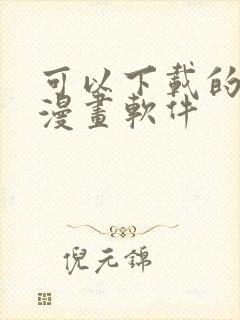 可以下載的
漫畫軟件
倪元錦